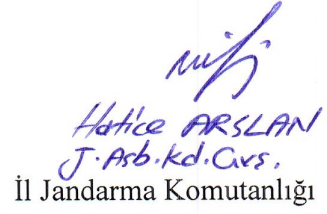 Hatice ARSLAN
J.Asb.Kd.Çvş.
İl Jandarma Komutanlığı